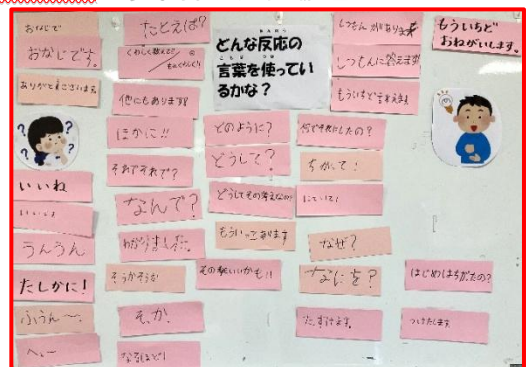 おなじです。
ありがとうございます
いいね
いいよ
うんうん
たしかに!
ふぅん〜。
へぇ〜
たとえば?
くわしく教えて
他にもあります
ほかに!!
それでそれで?
なんで?
わかりました。
そうかそうか
そっか。
なるほど!
どんな反応の
言葉を使ってい
るかな?
どのように?
どうして?
どうしてその考えなの?
もう1つあります
その考えいいかも!!
しつもんがあります
しつもんに答えます
もういちど言えます
何でそれにしたの?
ちがって!
にていて!
なぜ?
なにを?
たすけます。
もういちど
おねがいします。
はじめはちがたの?
つけたします